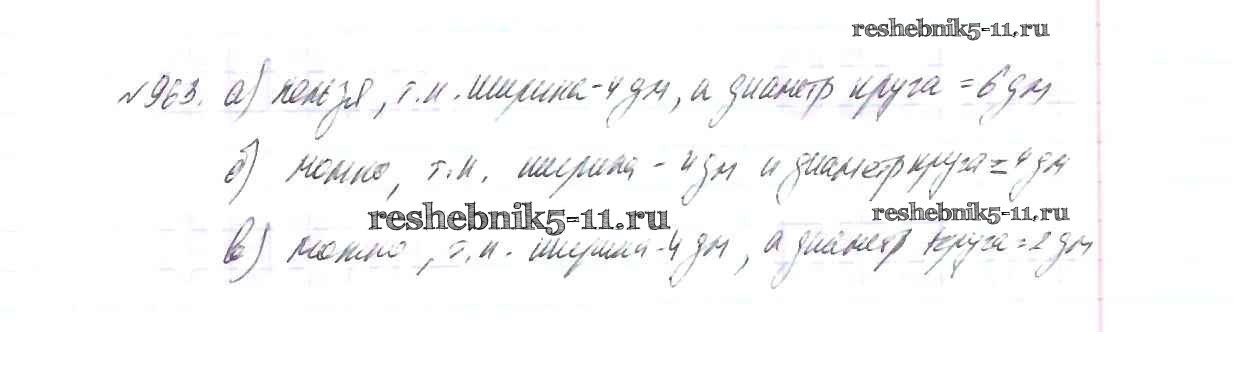 reshebnik5-11.ru
№963. а) нельзя, т.к. ширина - 4 дм, а диаметр круга = 6 дм
б) можно, т.к. ширина - 4 дм и диаметр круга = 4 дм
reshebnik5-11.ru reshebnik5-11.ru
в) можно, т.к. ширина - 4 дм, а диаметр круга = 2 дм